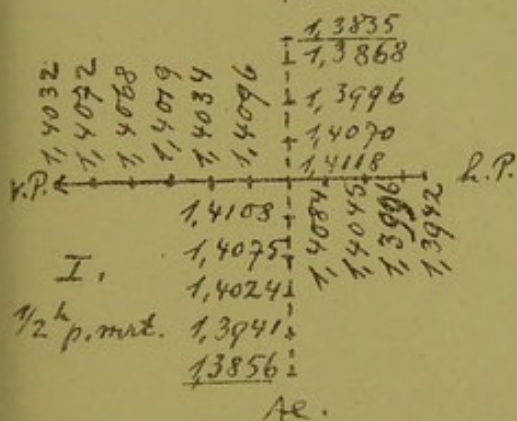 1,3835
1,3868
1,3996
1,4070
1,4118
1,4032
1,4072
1,4068
1,4079
1,4034
1,4096
v.P.
h.P.
1,4108
1,4075
1,4024
1,3941
1,3856
1,4084
1,4045
1,3996
1,3942
I.
1/2 h p. mrt.
Ae.